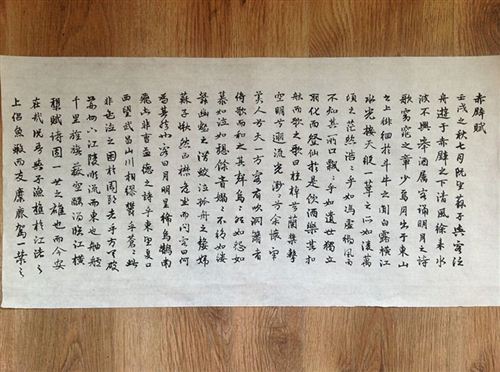 赤壁賦
壬戌之秋七月既望蘇子與客泛
舟遊于赤壁之下清風徐來水
波不興舉酒屬客誦明月之詩
歌窈窕之章少焉月出于東山
之上徘徊於斗牛之間白露橫江
水光接天縱一葦之所如凌萬
頃之茫然浩〻乎如馮虛御風而
不知其所止飄〻乎如遺世獨立
羽化而登仙於是飲酒樂甚扣
舷而歌之歌曰桂棹兮蘭槳擊
空明兮溯流光渺〻兮余懷望
美人兮天一方客有吹洞簫者
倚歌而和之其聲嗚〻然如怨如
慕如泣如訴餘音嫋〻不絕如縷
舞幽壑之潛蛟泣孤舟之嫠婦
蘇子愀然正襟危坐而問客曰何
為其然也客曰月明星稀烏鵲南
飛此非曹孟德之詩乎東望夏口
西望武昌山川相繆鬱乎蒼〻此
非孟德之困於周郎者乎方其破
荊州下江陵順流而東也舳艫
千里旌旗蔽空釃酒臨江橫
槊賦詩固一世之雄也而今安
在哉況吾與子漁樵於江渚之
上侶魚蝦而友麋鹿駕一葉之